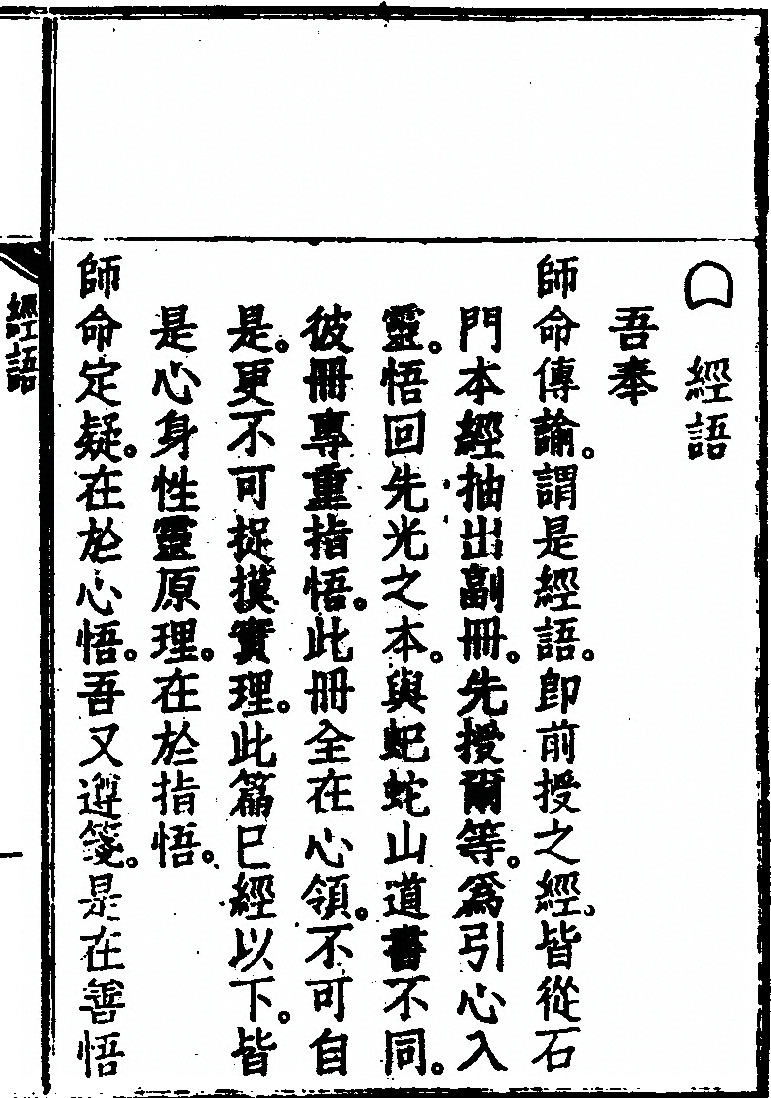 經語
吾奉
師命傳諭。謂是經語。即前授之經。皆從石
門本經抽出副冊。先授爾等。為引心入
靈。悟回先光之本。與蚆蛇山道書不同。
彼冊專重指悟。此冊全在心領。不可自
是。更不可捉摸實理。此篇已經以下。皆
是心身性靈原理。在於指悟。
師命定疑。在於心悟。吾又遵箋。是在善悟
經語
一